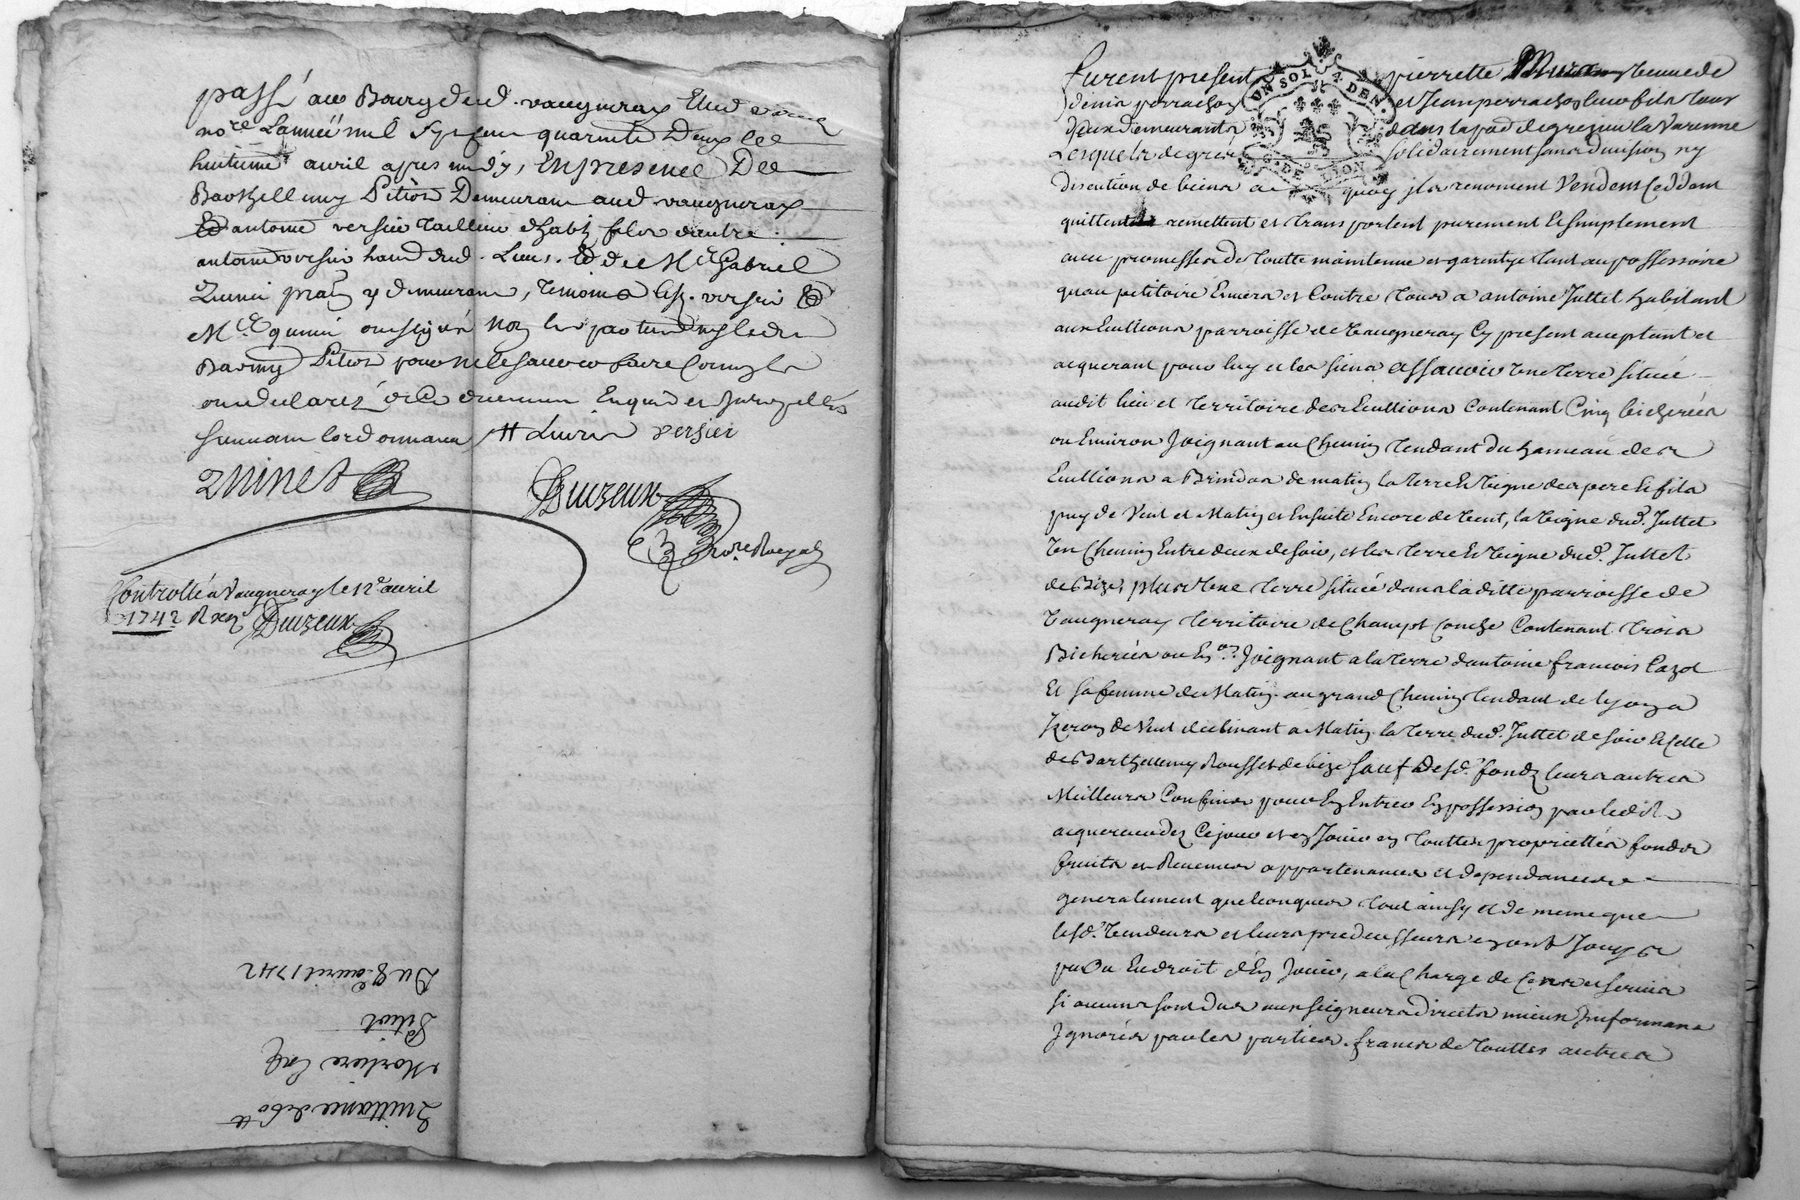 passé au Bourg dud. vaugneray Etud
nore Lannéé mil sept cens quarante Deux Le
huitieme avril apres midy, En presence De
Barthellemy Pitiot Demeurant aud. vaugneray
Et antoine versin tailleur d'habit fils d'autre
antoine versin hand dud. Lieu. Et de Me Gabriel
Quinet y demeurant, temoins versin Et
Me quinet ont signé Non les
Pitiot pour ne le sçavoir faire Comme
ont declaré de ce Enquis et
suivant Lordonnance versin
Quinet
Duizeux
nore Royal
Controllé a Vaugneray le 12e avril
1742 Duizeux
Quittance de 60 tt
Mortiere Caz
Pitiot
Du 8e avril 1742
furent present pierrette veuve de
denis perrachon et Jean perrachon leur fils tous
deux demeurants dans la pad. de grezieu la Varenne
Lesquels de gré solidairement sans division ny
discution de biens a quoy ils renoncent Vendent Ceddent
quittent remettent et transportent purement et simplement
avec promesses de toutte maintenue et garentye tant au possessoire
quau petitoire Envers et Contre tous a antoine Juttet habitant
aux Eullions parroisse de Vaugneray Cy present acceptant et
acquerant pour luy et les siens assavoir Une terre située
audit lieu et territoire des Eullions Contenant Cinq bicherées
ou Environ Joignant au Chemin tendant du hameau des
Eullions a Brindas de matin la terre Et Vigne des pere et fils
puy de Vent et Matin et Ensuite Encore de Vent, la Vigne dud. Juttet
Un Chemin Entre deux de soir, et les terre Et Vigne dud. Juttet
de Bize, plus Une terre située dans la ditte parroisse de
Vaugneray territoire de Champt Conche Contenant trois
Bicherées ou En.on Joignant a la terre dantoine francois Cazot
Et sa femme de Matin au grand Chemin tendant de lyon a
Izeron de Vent declinant a Matin la terre dud. Juttet de soir Et Celle
de Barthellemy Rousset de bize sauf desd. fondz leurs autres
Meilleurs Confins pour En Entrer En possession par ledit
acquereur dez Ce jour et en Jouir en touttes propriettés fonds
fruits et Revenus appartenances et dependances
generalement quelconques tout ainsy et de meme que
lesd. Vendeurs et leurs predecesseurs en ont Jouy
pu Ou En droit d'En Jouir, a la Charge de Cens et servis
si aucuns sont dus aux seigneurs directs mieux Informans
Ignorés par les parties. francs de touttes autres
UN SOL 4 DEN.
G. DE LION